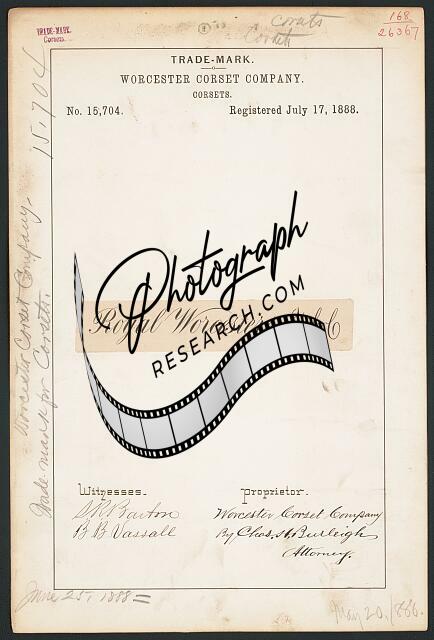 TRADE-MARK.
Corsets.
corsets
Corsets
168
26367
TRADE-MARK.
WORCESTER CORSET COMPANY.
CORSETS.
No. 15,704.
Registered July 17, 1888.
15,704
Worcester Corset Company.
Trade-mark for Corsets.
Photograph
RESEARCH.COM
Royal Worcester
Witnesses.
Proprietor.
S R Barton
Worcester Corset Company
B B Vassall
By Chas. H. Burleigh
Attorney.
June 25, 1888
May 20, 1886.